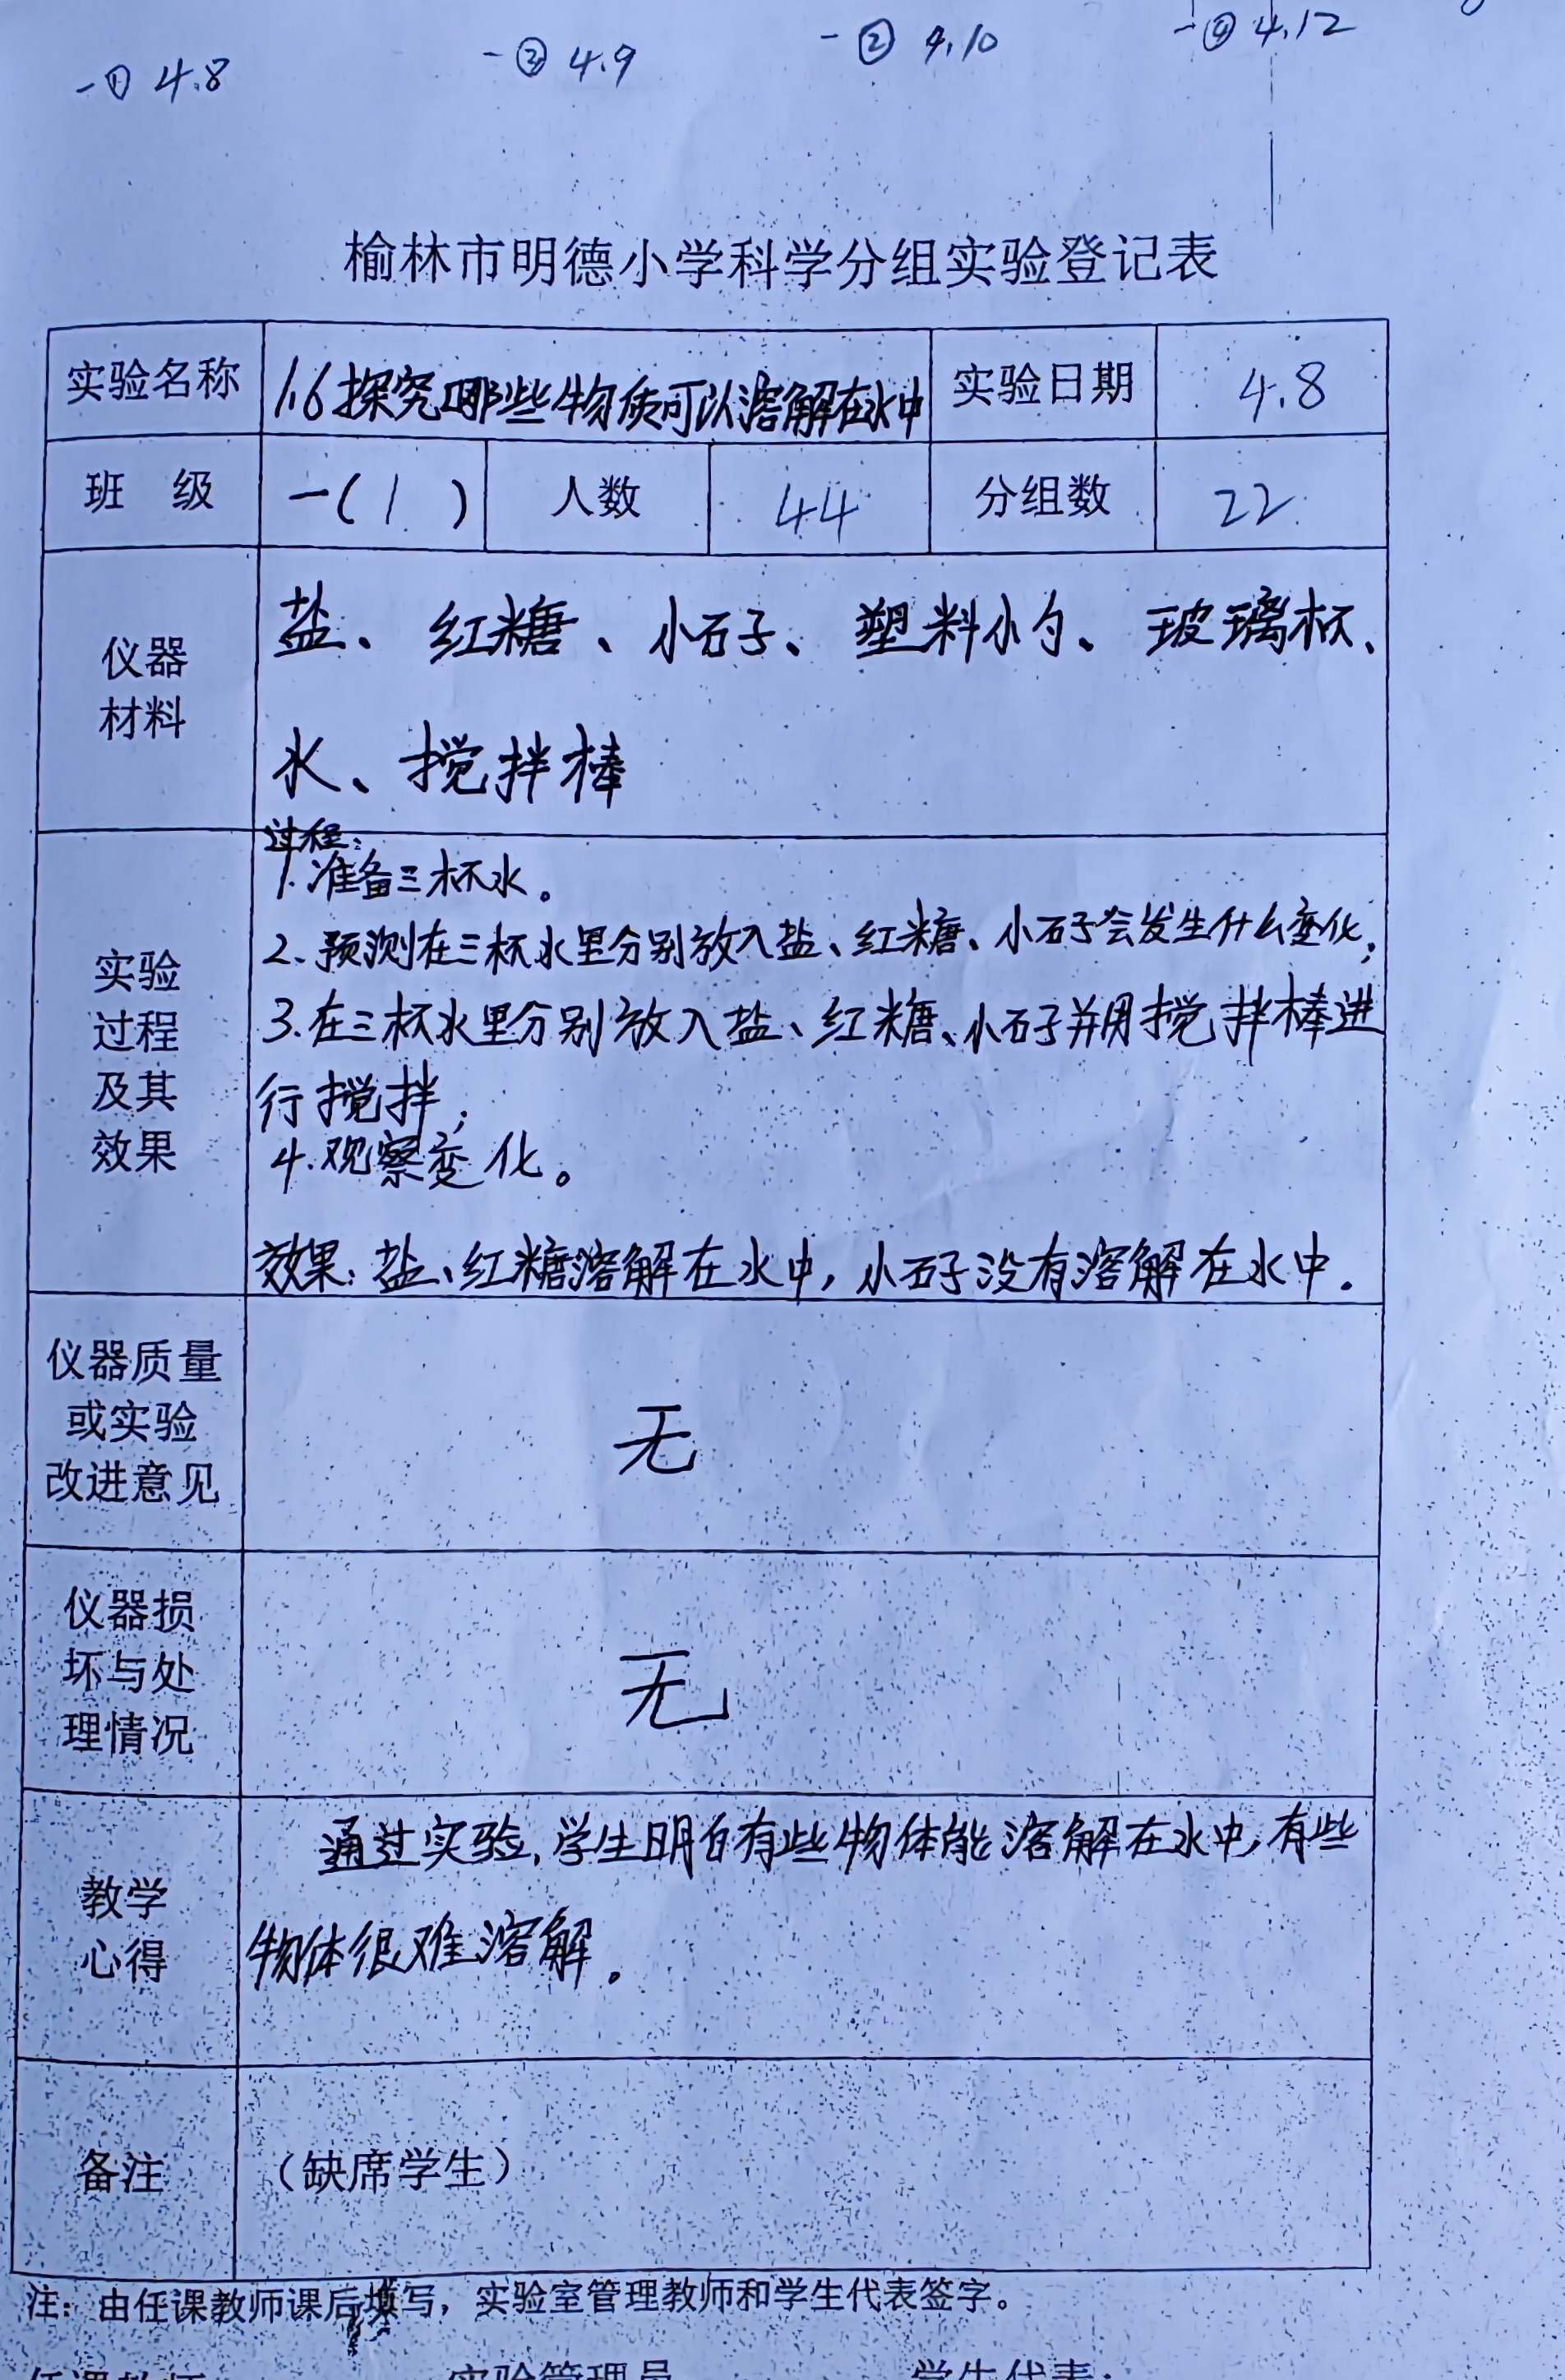 一① 4.8 一③ 4.9 一② 4.10 一④ 4.12
榆林市明德小学科学分组实验登记表
实验名称 1.6探究哪些物质可以溶解在水中 实验日期 4.8
班 级 一(1) 人数 44 分组数 22
仪器
材料
盐、红糖、小石子、塑料小勺、玻璃杯、
水、搅拌棒
实验
过程
及其
效果
过程:
1.准备三杯水。
2.预测在三杯水里分别放入盐、红糖、小石子会发生什么变化;
3.在三杯水里分别放入盐、红糖、小石子并用搅拌棒进
行搅拌;
4.观察变化。
效果:盐、红糖溶解在水中,小石子没有溶解在水中.
仪器质量
或实验
改进意见
无
仪器损
坏与处
理情况
无
教学
心得
通过实验,学生明白有些物体能溶解在水中,有些
物体很难溶解.
备注 （缺席学生）
注：由任课教师课后填写，实验室管理教师和学生代表签字。
任课教师 实验管理员 学生代表：